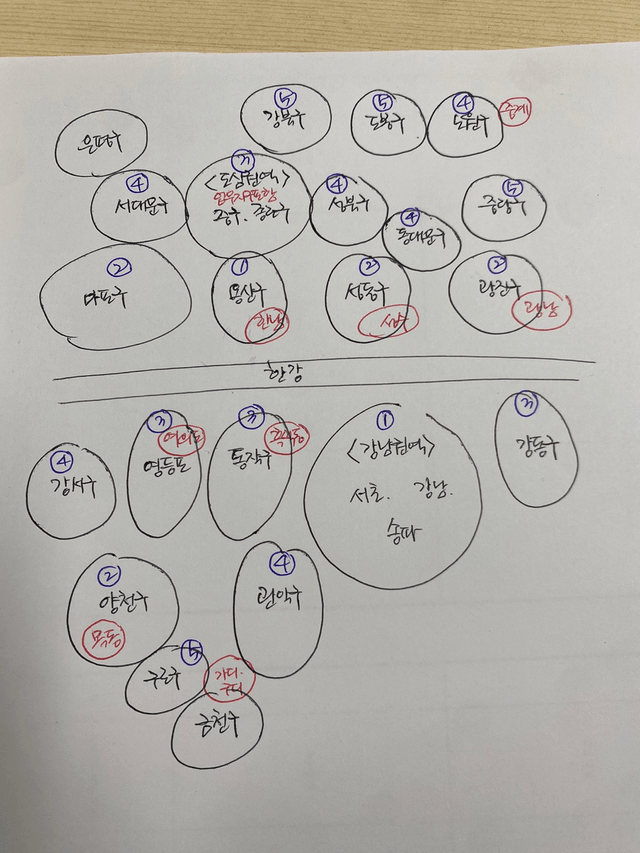 ⑤
강북구
⑤
도봉구
④
노원구
중계
은평구
④
서대문구
③
<도심권역>
업무지구포함
중구. 종로구
④
성북구
④
동대문구
⑤
중랑구
②
마포구
①
용산구
한남
②
성동구
성수
②
광진구
광남
한강
④
강서구
③
여의도
영등포
③
흑석동
동작구
①
<강남권역>
서초. 강남.
송파
③
강동구
②
양천구
목동
④
관악구
⑤
구로구
가디.
구디
금천구